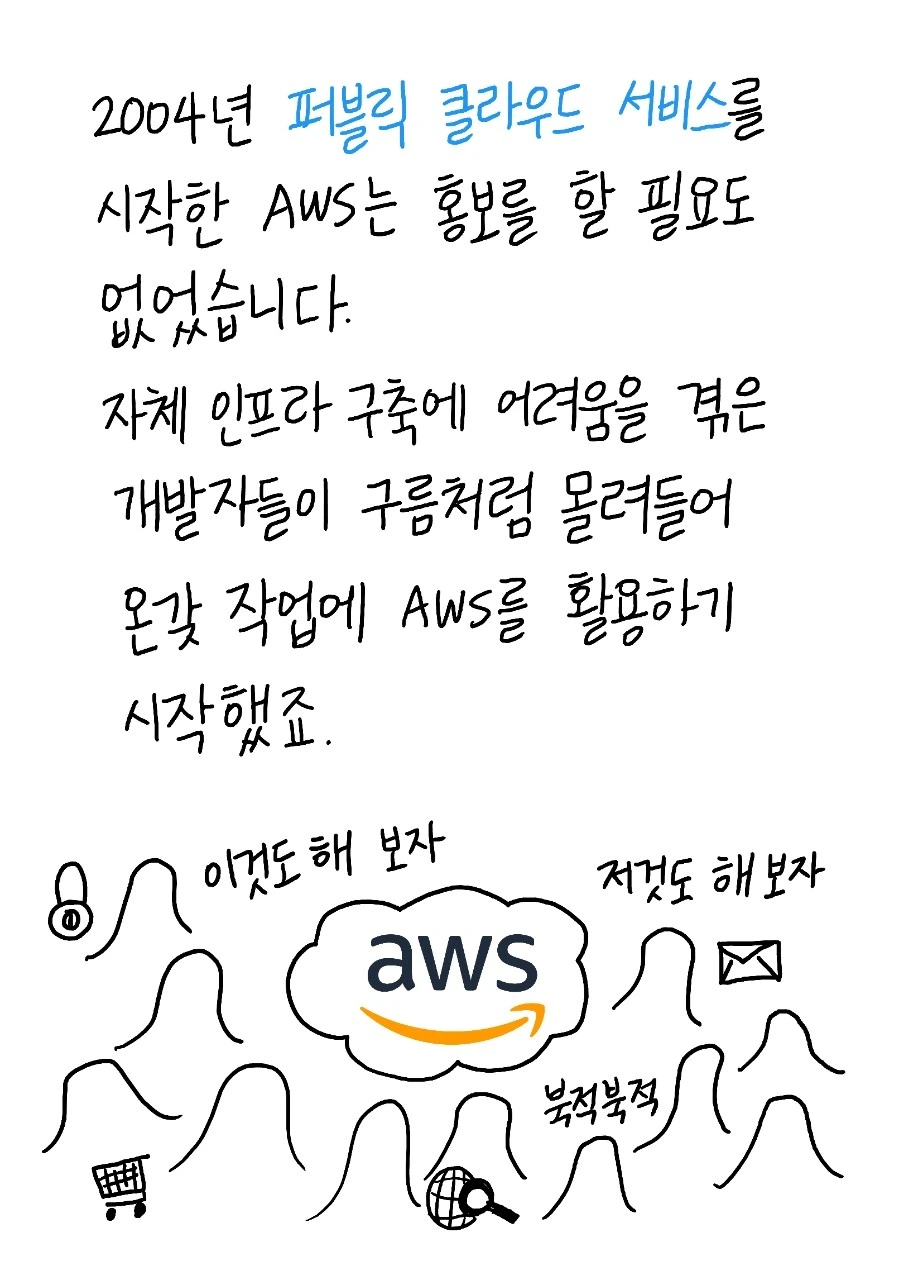 2004년 퍼블릭 클라우드 서비스를
시작한 AWS는 홍보를 할 필요도
없었습니다.
자체 인프라 구축에 어려움을 겪은
개발자들이 구름처럼 몰려들어
온갖 작업에 AWS를 활용하기
시작했죠.
이것도 해 보자
저것도 해 보자
aws
북적북적